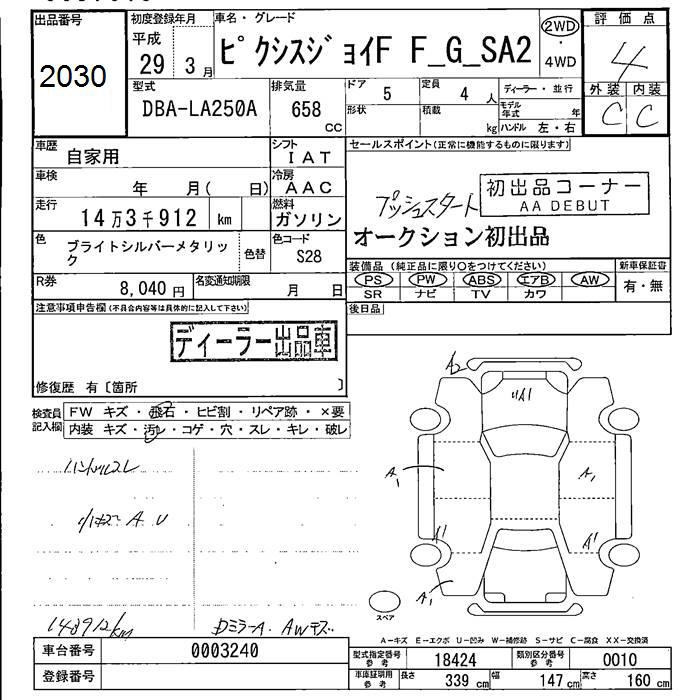 出品番号
2030
初度登録年月
平成
29 3 月
車名・グレード
ピクシスジョイF F_G_SA2
2WD
・
4WD
評価点
4
外装 内装
C C
型式
DBA-LA250A
排気量
658
cc
ドア 5
定員 4 人
ディーラー・並行
形状
積載
kg
モデル年式 年
ハンドル 左・右
車歴
自家用
シフト
IAT
セールスポイント(正常に機能するものに限ります)
車検
年 月( 日)
冷房
AAC
プッシュスタート
初出品コーナー
AA DEBUT
走行
14万3千912 km
燃料
ガソリン
オークション初出品
色
ブライトシルバーメタリック
色替
色コード
S28
装備品(純正品に限り○をつけてください)
新車保証書
PS PW ABS エアB AW
有・無
SR ナビ TV カワ
R券
8,040 円
名変通知期限
月 日
後日品
注意事項申告欄(不具合内容等は具体的に記入して下さい)
ディーラー出品車
修復歴 有〔箇所 〕
検査員記入欄
FW キズ・飛石・ヒビ割・リペア跡・×要
内装 キズ・汚レ・コゲ・穴・スレ・キレ・破レ
ハンドルスレ
A U
148912km
DミラーA. AWキズ
A2
A1
A1
A1
A1
A1
スペア
A-キズ E-エクボ U-凹み W-補修跡 S-サビ C-腐食 XX-交換済
車台番号
0003240
登録番号
型式指定番号 参考
18424
類別区分番号 参考
0010
車庫証明用 参考
長さ 339 cm
幅 147 cm
高さ 160 cm